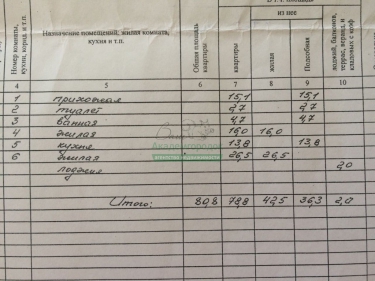 в т.ч. площадь
из нее
Номер комнаты, кухни, корид. и т.п.
Назначение помещений, жилая комната, кухня и т.п.
Общая площадь квартиры
квартиры
жилая
Подсобная
лоджий, балконов, террас, веранд и кладовых с коэф
4 5 6 7 8 9 10
1 прихожая 15,1 15,1
2 туалет 2,7 2,7
3 ванная 4,7 4,7
4 жилая 16,0 16,0
5 кухня 13,8 13,8
6 жилая 26,5 26,5
лоджия 2,0
Итого: 80,8 78,8 42,5 36,3 2,0